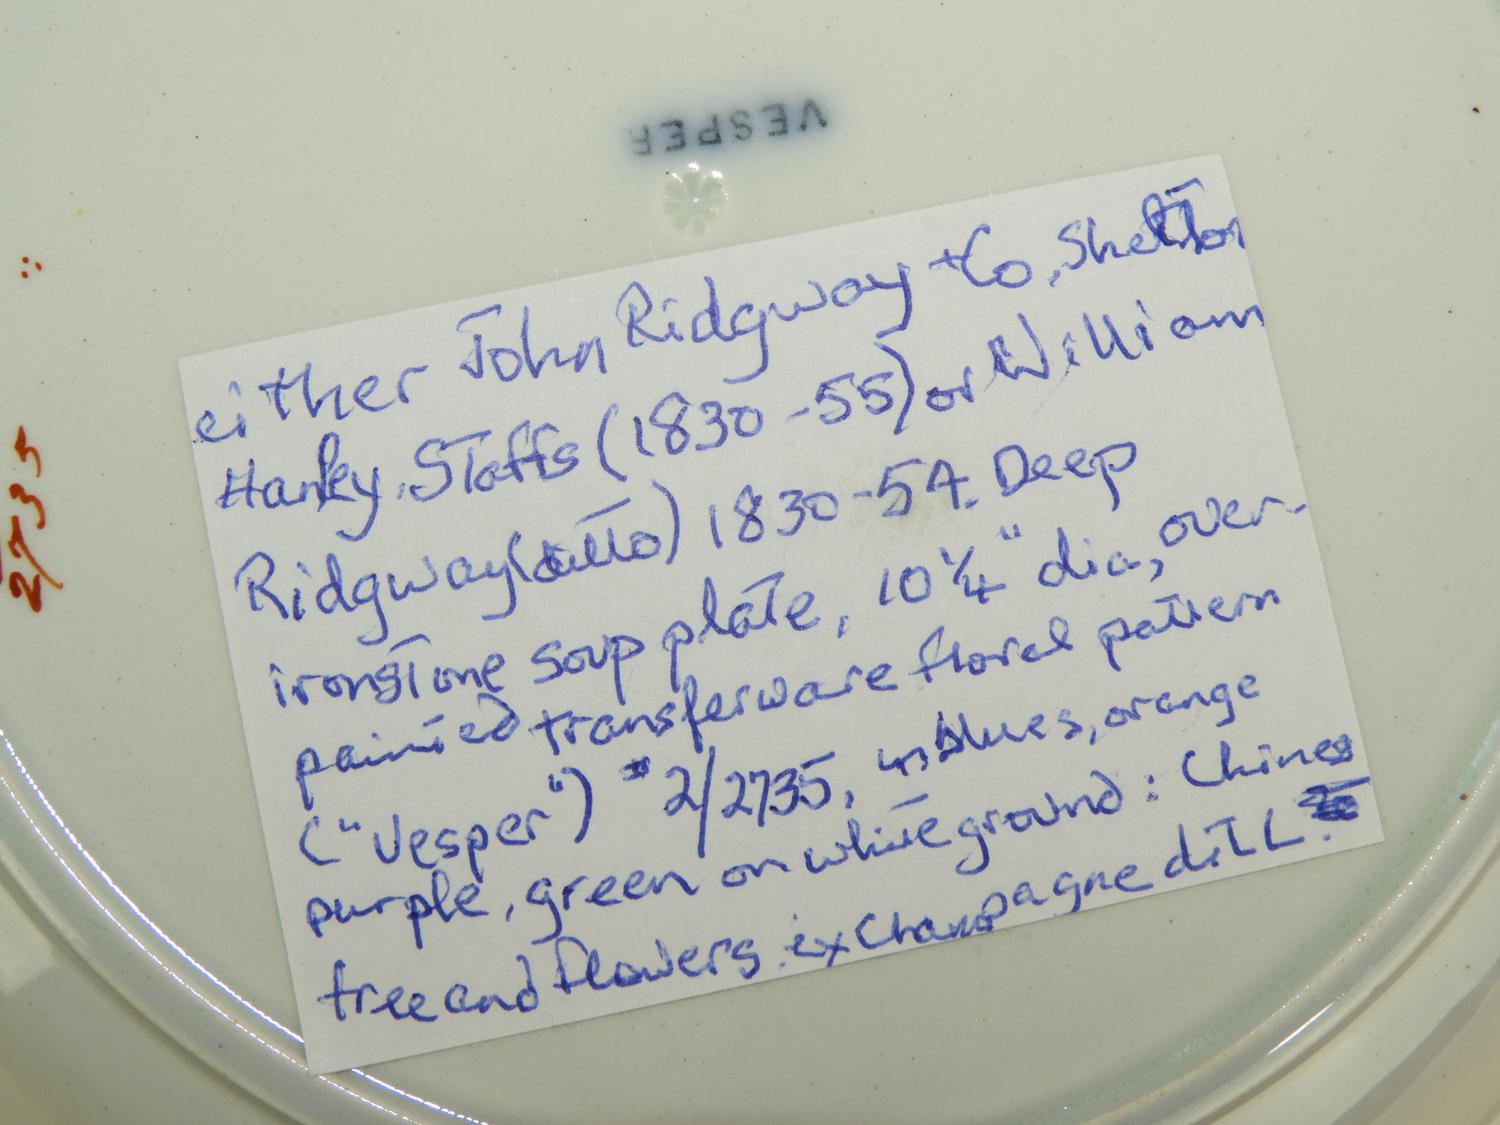 VESPER
2735
either John Ridgway + Co, Shelton
Hanley, Staffs (1830-55) or William
Ridgway (ditto) 1830-54. Deep
ironstone soup plate, 10 1/4" dia, over-
painted transferware floral pattern
("Vesper") 2/2735, in blues, orange
purple, green on white ground: Chinese
tree and flowers. ex Champagne